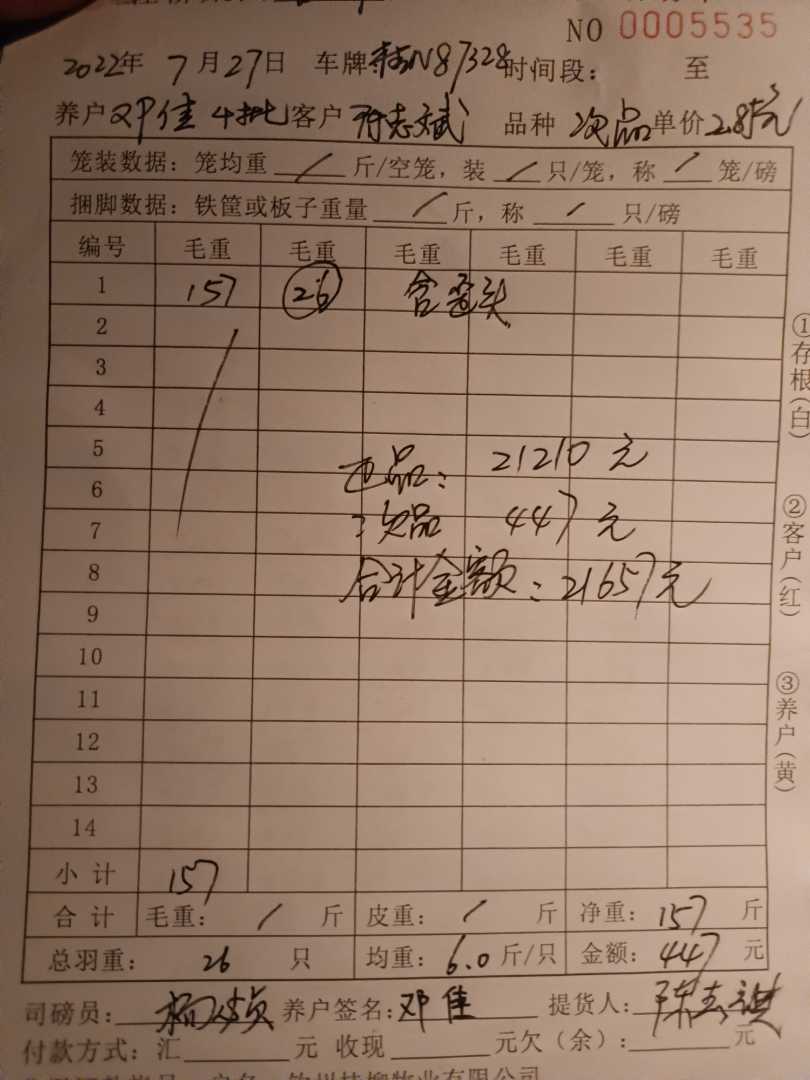 NO 0005535
2022年 7月27日 车牌:桂N87328 时间段: 至
养户 邓佳 4批 客户 许志斌 品种 次品 单价 2.85元
笼装数据:笼均重 / 斤/空笼,装 / 只/笼,称 / 笼/磅
捆脚数据:铁筐或板子重量 / 斤,称 / 只/磅
编号 毛重 毛重 毛重 毛重 毛重 毛重
1 157 26 含歪头
2
3
4
5
正品: 21210元
6
7
次品 447元
8
合计金额: 21657元
9
10
11
12
13
14
小计 157
合计 毛重: / 斤 皮重: / 斤 净重: 157 斤
总羽重: 26 只 均重: 6.0 斤/只 金额: 447 元
司磅员: 养户签名: 邓佳 提货人:
付款方式:汇 元 收现 元欠(余): 元
①存根(白)
②客户(红)
③养户(黄)